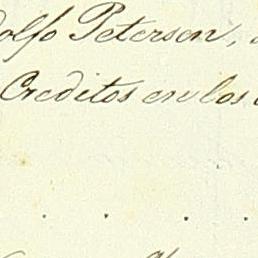 dolfo Petersen,
Creditos en los